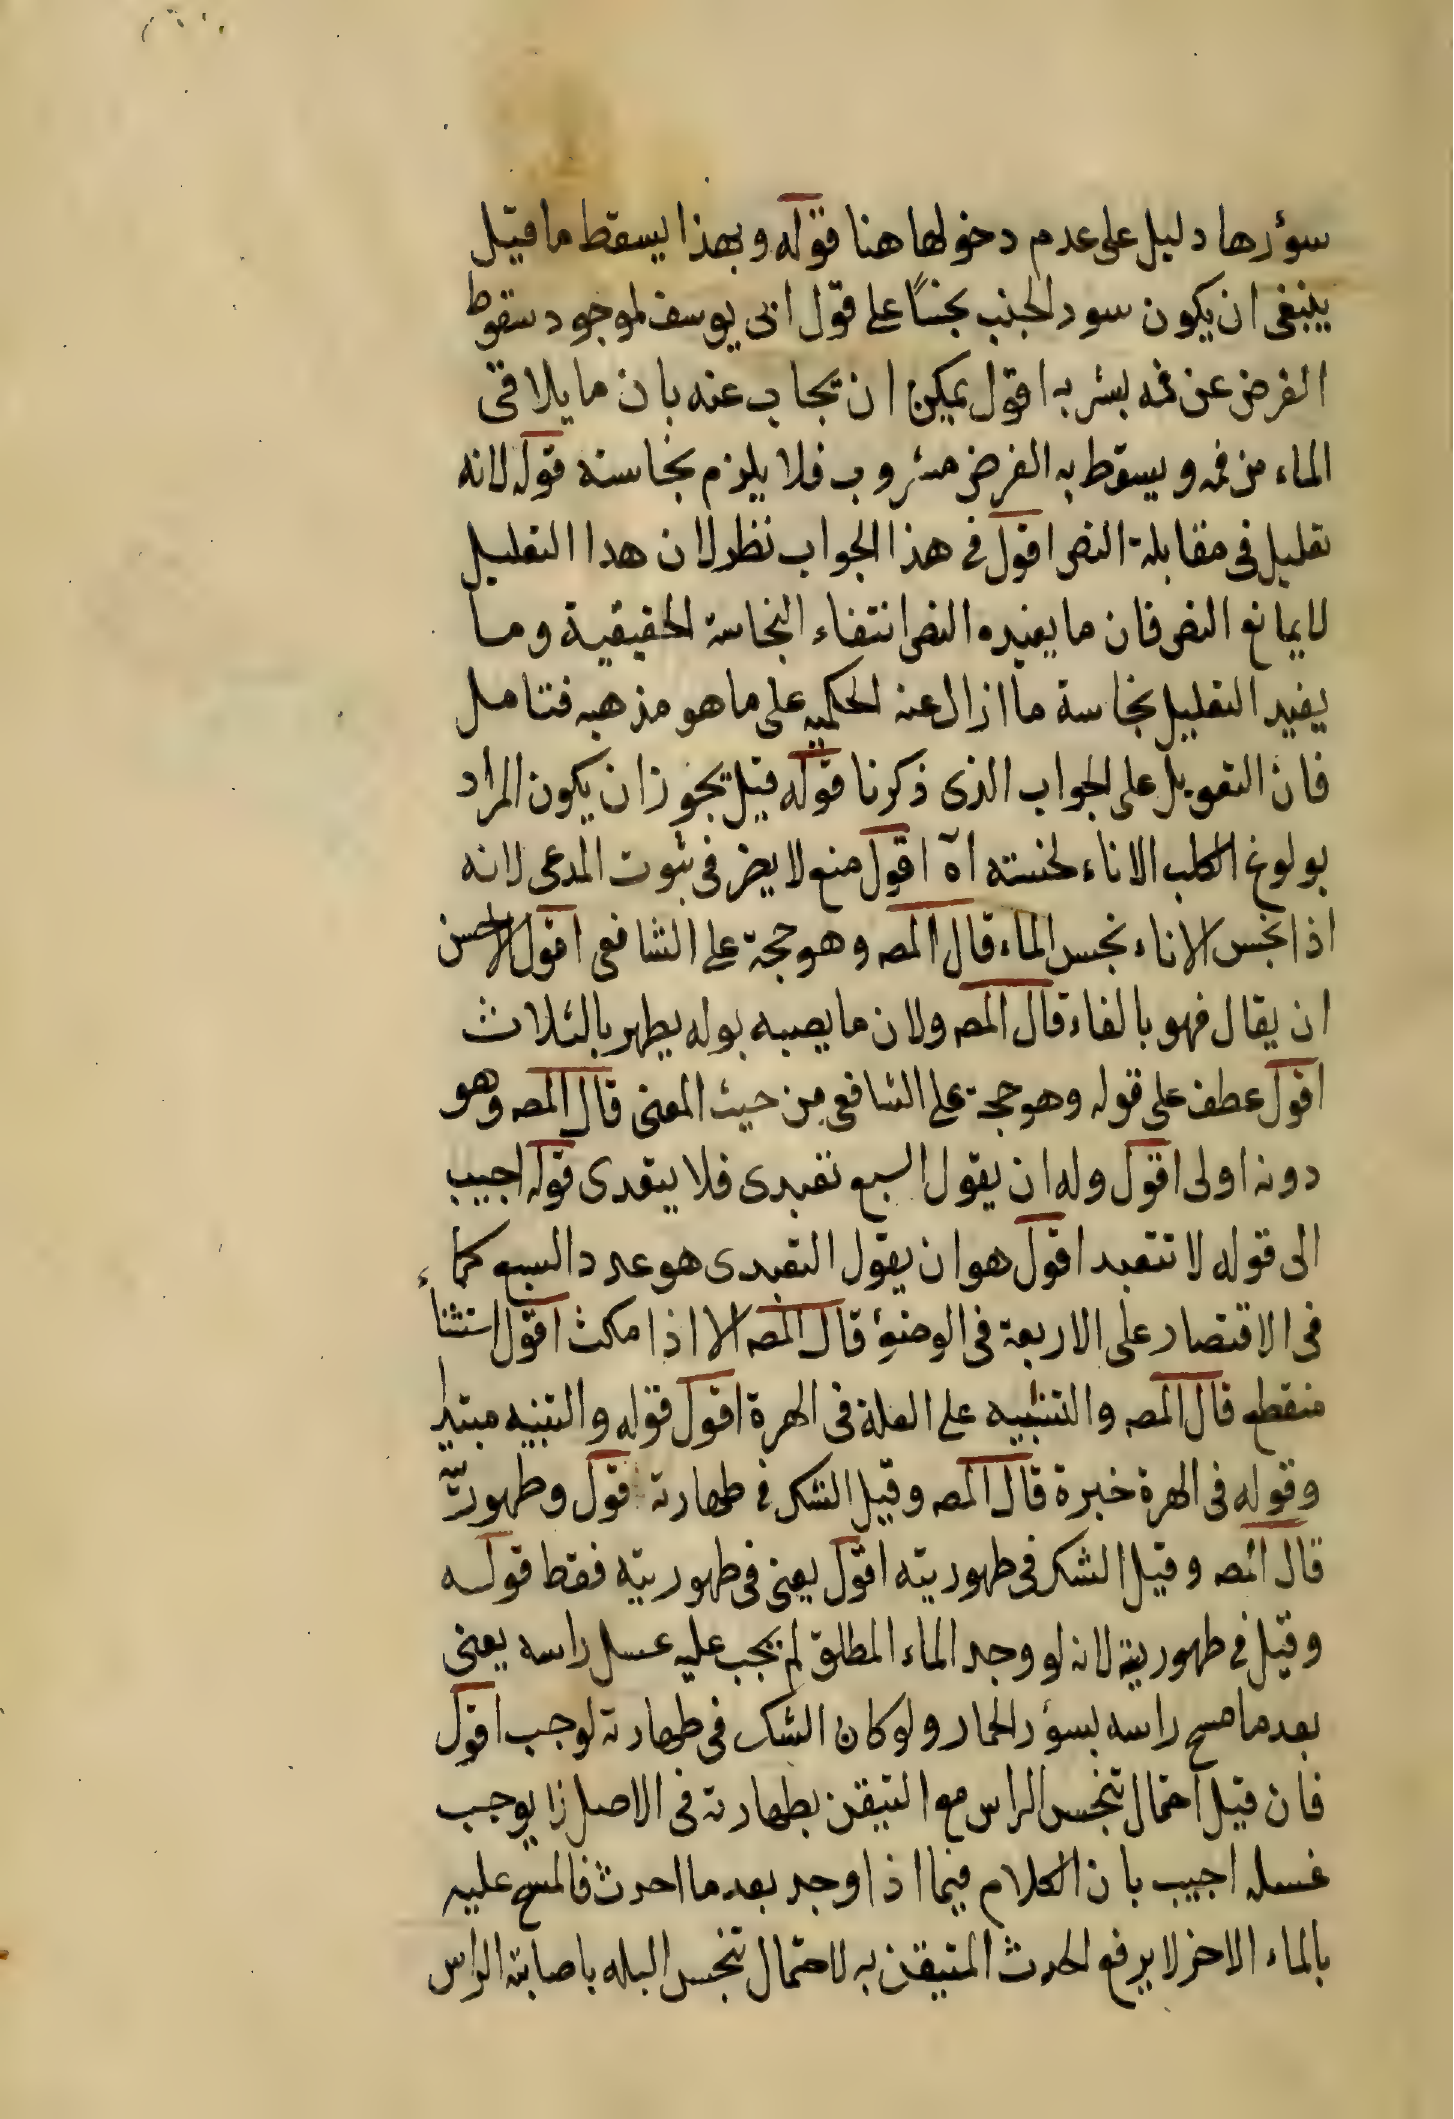 سؤرها دليل على عدم دخولها هنا قوله وبهذا يسقط ما قيل
ينبغى ان يكون سور الجنب نجسًا على قول ابى يوسف لموجود سقوط
الفرض عن فمه بشربه اقول يمكن ان يجاب عنه بان ما يلاقى
الماء من فمه ويسقط به الفرض مشروب فلا يلزم نجاسته قوله لانه
تعليل فى مقابلة النص اقول فى هذا الجواب نظر لان هدا التعليل
لا يمانع النص فان ما يفيده النص انتفاء النجاسة الحقيقية وما
يفيد التعليل نجاسة ما ازال عنه الحكميه على ما هو مذهبه فتامل
فان التعويل على الجواب الذى ذكرنا قوله قيل يجوز ان يكون المراد
بولوغ الكلب الاناء لحسته اه اقول منع لا يضر فى ثبوت المدعى لانه
اذا نجس الاناء نجس الماء قال المص وهو حجة على الشافعى اقول الاحسن
ان يقال فهو بالفاء قال المص ولان ما يصيبه بوله يطهر بالثلاث
اقول عطف على قوله وهو حجة على الشافعى من حيث المعنى قال المص وهو
دونه اولى اقول وله ان يقول السبع تعبدى فلا يتعدى قوله اجيب
الى قوله لا تتعبد اقول هو ان يقول التعبدى هو عدد السبع كما
فى الاقتصار على الاربعة فى الوضوء قال المص الا اذا مكث اقول استثناء
منقطع قال المص والتنبيه على العلة فى الهرة اقول قوله والتنبيه مبتدا
وقوله فى الهرة خبرة قال المص وقيل الشك فى طهارته اقول وطهوريته
قال المص وقيل الشك فى طهوريته اقول يعنى فى طهوريته فقط قوله
وقيل فى طهوريته لانه لو وجد الماء المطلق لم يجب عليه غسل راسه يعنى
بعد ما مسح راسه بسؤر الحمار ولو كان الشك فى طهارته لوجب اقول
فان قيل احتمال تنجس الراس مع التيقن بطهارته فى الاصل لا يوجب
غسله اجيب بان الكلام فيما اذا وجد بعد ما احدث فالمسح عليه
بالماء الاخر لا يرفع الحدث المتيقن به لاحتمال تنجس البله باصابته الراس